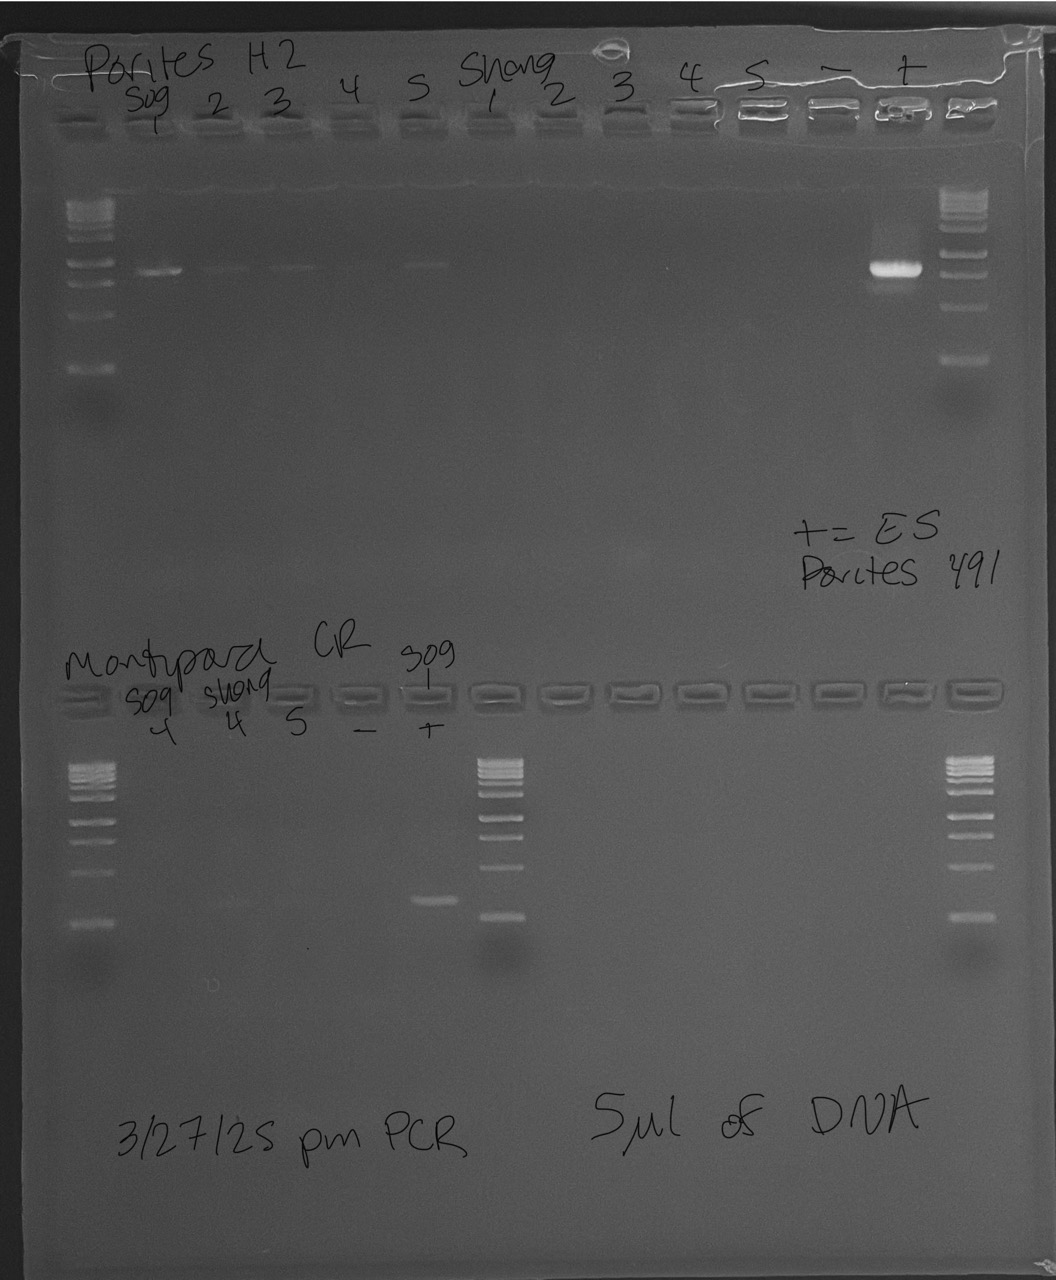 Porites H2
Sog 1 2 3 4 5 Shong 1 2 3 4 5 - +
+ = ES
Porites 491
Montipora CR
Sog 4 Shong 4 5 - Sog 1 +
3/27/25 pm PCR
5µl of DNA